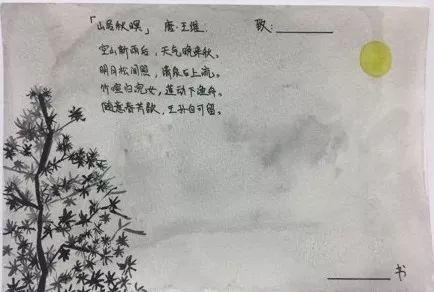 「山居秋暝」 唐·王维 歌：
空山新雨后，天气晚来秋。
明月松间照，清泉石上流。
竹喧归浣女，莲动下渔舟。
随意春芳歇，王孙自可留。
书